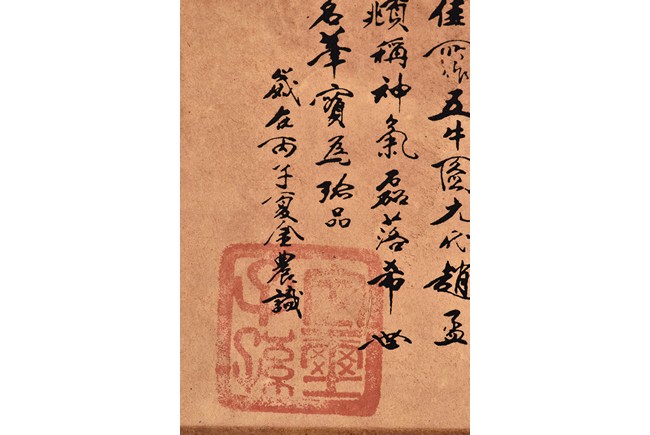 佳五牛圖元代趙孟
頫稱神氣磊落希世
名筆寶爲珍品
歲在丙午夏金農識
宜爾
子孫